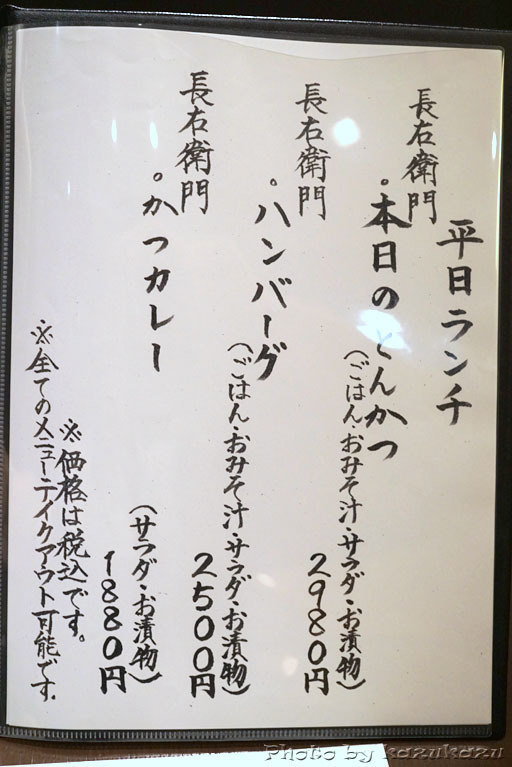 平日ランチ
長右衛門
。本日のとんかつ
(ごはん・おみそ汁・サラダ・お漬物)
2980円
長右衛門
。ハンバーグ
(ごはん・おみそ汁・サラダ・お漬物)
2500円
長右衛門
。かつカレー
(サラダ・お漬物)
1880円
※価格は税込です。
※全てのメニューテイクアウト可能です.
Photo by kazukazu